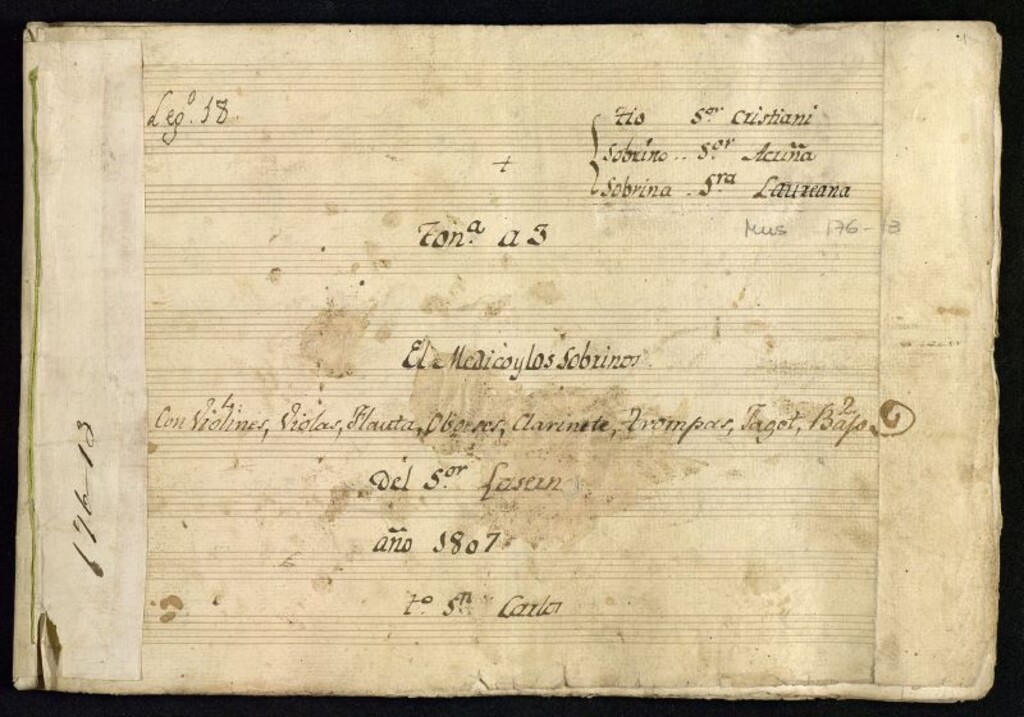 Leg.º 18
Tio Sor Cristiani
Sobrino .. Sor Acuña
Sobrina .. Sra Laureana
+
Mus 176-13
Ton.ª a 3
El Medico y los Sobrinos
Con Violines, Violas, Flauta, Oboeses, Clarinete, trompas, Fagot, Bajo
Del S.or
año 1807
t.º Sn Carlos
176-13